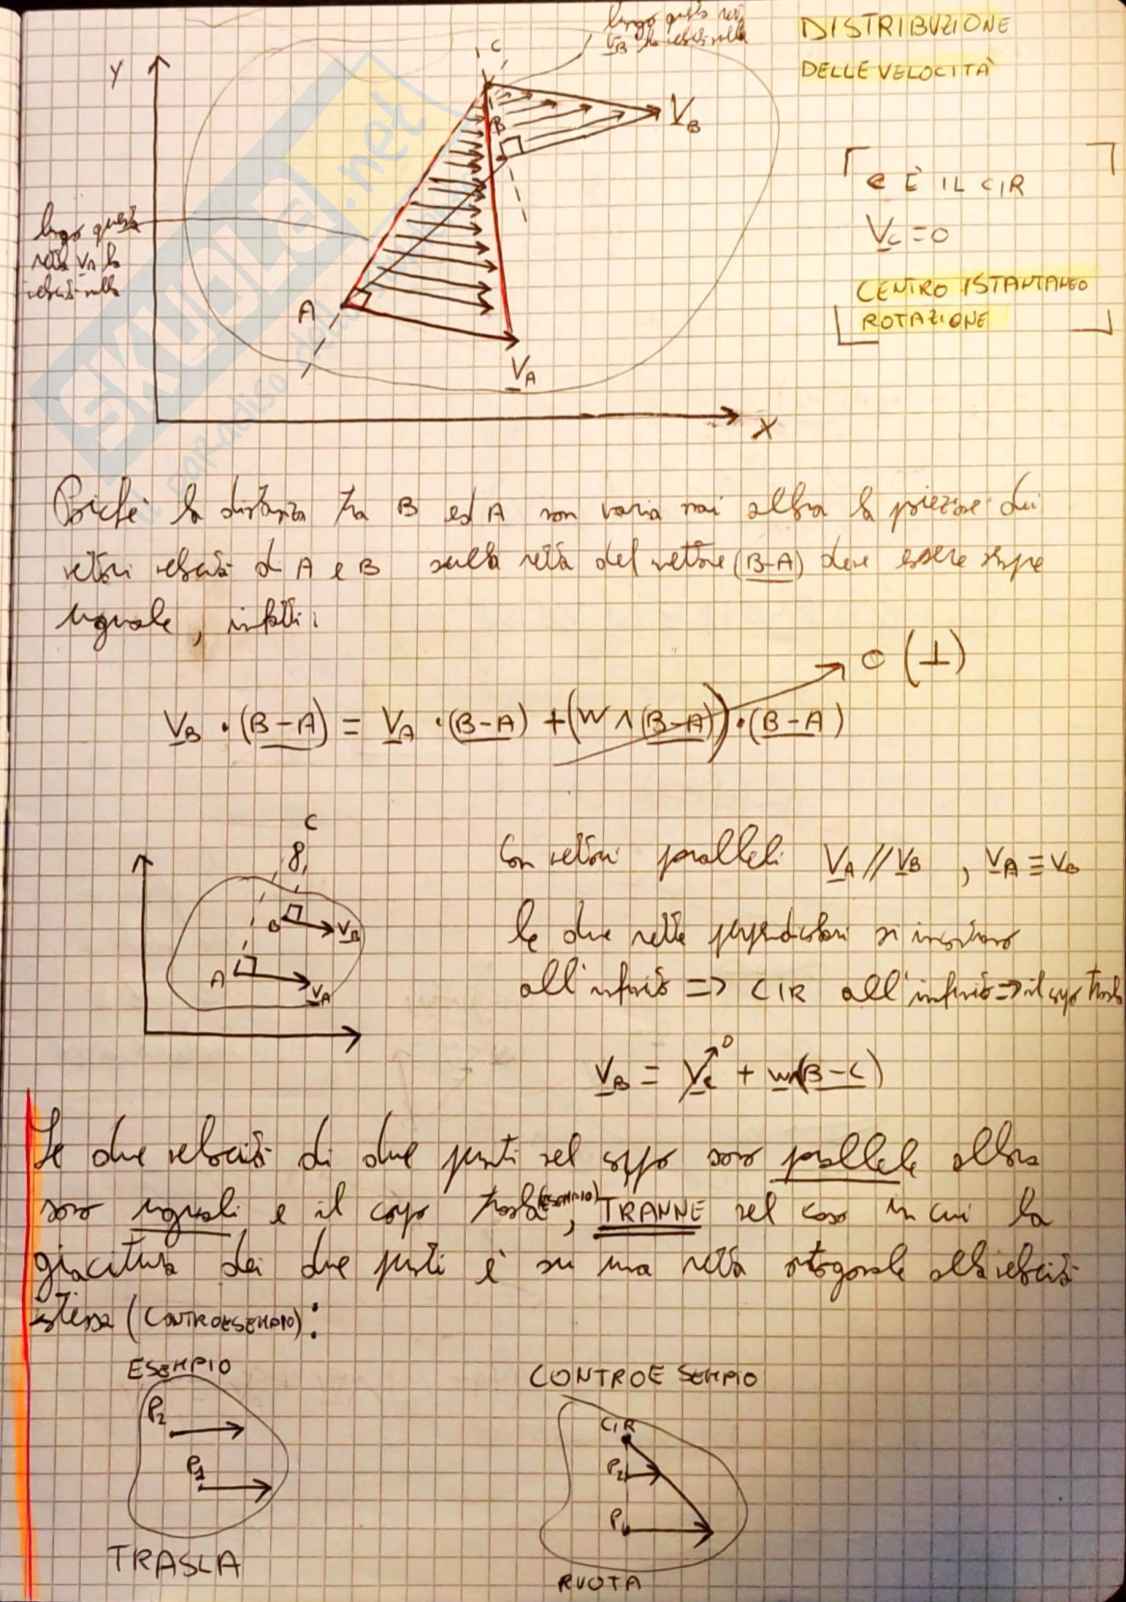 DISTRIBUZIONE
DELLE VELOCITÀ
lungo questa retta
V_B ha velocità nulla
Y
C
B
V_B
C È IL CIR
V_C = 0
CENTRO ISTANTANEO
ROTAZIONE
lungo questa
retta V_A ha
velocità nulla
A
V_A
X
SKUOLA.net
Poiché la distanza tra B ed A non varia mai allora la proiezione dei
vettori velocità di A e B sulla retta del vettore (B-A) deve essere sempre
uguale, infatti:
0 (⊥)
V_B · (B-A) = V_A · (B-A) + (W ∧ (B-A)) · (B-A)
C
B
V_B
A
V_A
Con vettori paralleli V_A // V_B , V_A ≡ V_B
le due rette perpendicolari si incontrano
all'infinito => CIR all'infinito => il corpo trasla
V_B = V_C 0 + W∧(B-C)
Se due velocità di due punti nel corpo sono parallele allora
sono uguali e il corpo trasla (ESEMPIO), TRANNE nel caso in cui la
giacitura dei due punti è su una retta ortogonale alla velocità
stessa (CONTROESEMPIO):
ESEMPIO
P2
P1
TRASLA
CONTROESEMPIO
CIR
P2
P1
RUOTA